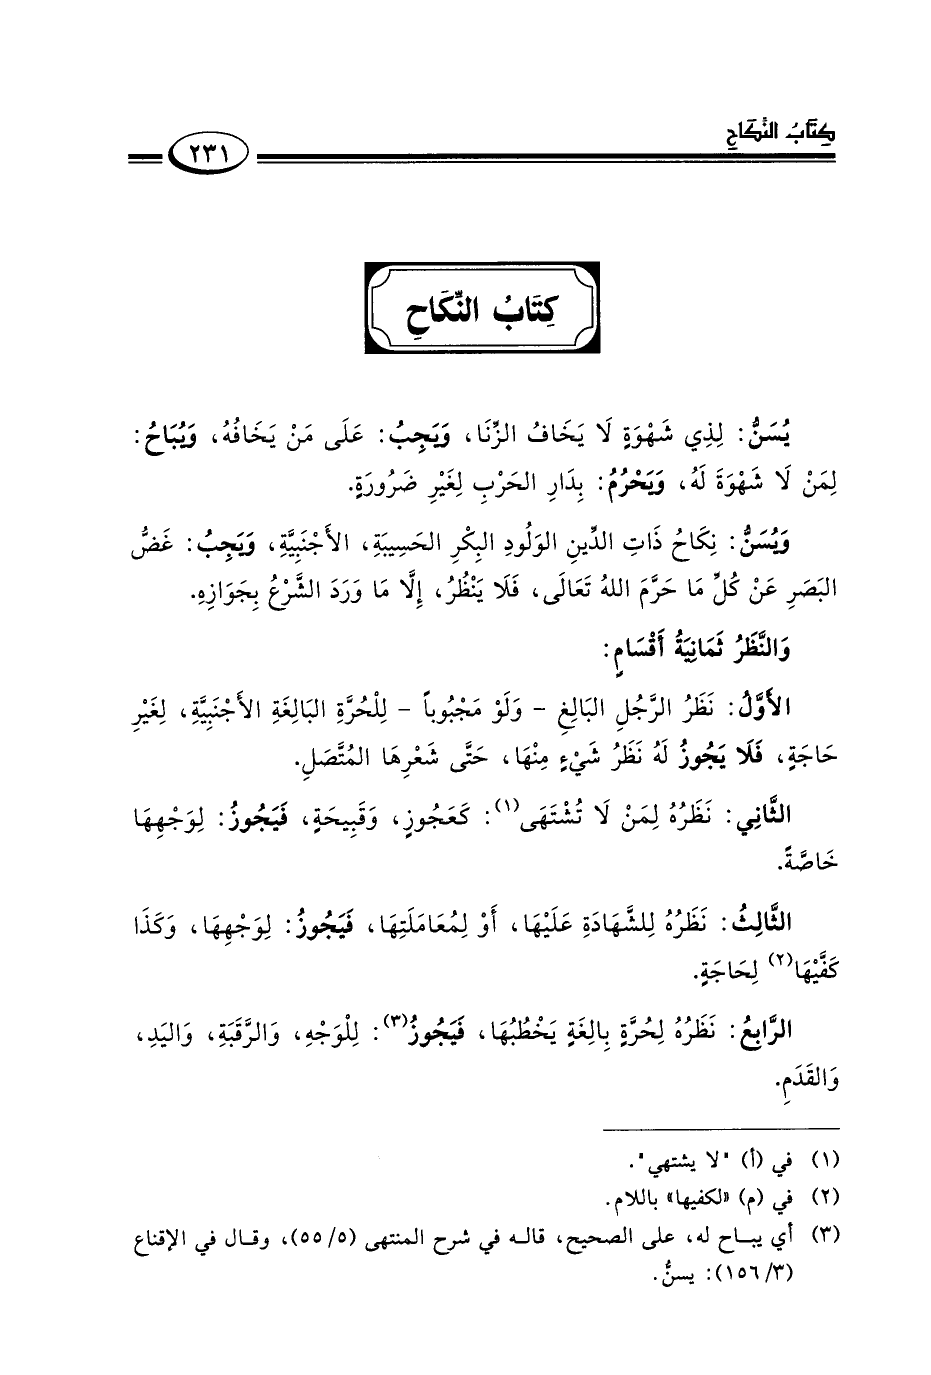 كِتَابُ النِّكَاحِ
٢٣١
كِتَابُ النِّكَاحِ
يُسَنُّ: لِذِي شَهْوَةٍ لَا يَخَافُ الزِّنَا، وَيَجِبُ: عَلَى مَنْ يَخَافُهُ، وَيُبَاحُ:
لِمَنْ لَا شَهْوَةَ لَهُ، وَيَحْرُمُ: بِدَارِ الحَرْبِ لِغَيْرِ ضَرُورَةٍ.
وَيُسَنُّ: نِكَاحُ ذَاتِ الدِّينِ الوَلُودِ البِكْرِ الحَسِيبَةِ، الأَجْنَبِيَّةِ، وَيَجِبُ: غَضُّ
البَصَرِ عَنْ كُلِّ مَا حَرَّمَ اللهُ تَعَالَى، فَلَا يَنْظُرُ، إِلَّا مَا وَرَدَ الشَّرْعُ بِجَوَازِهِ.
وَالنَّظَرُ ثَمَانِيَةُ أَقْسَامٍ:
الأَوَّلُ: نَظَرُ الرَّجُلِ البَالِغِ - وَلَوْ مَجْبُوباً - لِلْحُرَّةِ البَالِغَةِ الأَجْنَبِيَّةِ، لِغَيْرِ
حَاجَةٍ، فَلَا يَجُوزُ لَهُ نَظَرُ شَيْءٍ مِنْهَا، حَتَّى شَعْرِهَا المُتَّصَلِ.
الثَّانِي: نَظَرُهُ لِمَنْ لَا تُشْتَهَى(١): كَعَجُوزٍ، وَقَبِيحَةٍ، فَيَجُوزُ: لِوَجْهِهَا
خَاصَّةً.
الثَّالِثُ: نَظَرُهُ لِلشَّهَادَةِ عَلَيْهَا، أَوْ لِمُعَامَلَتِهَا، فَيَجُوزُ: لِوَجْهِهَا، وَكَذَا
كَفَّيْهَا(٢) لِحَاجَةٍ.
الرَّابِعُ: نَظَرُهُ لِحُرَّةٍ بِالِغَةٍ يَخْطُبُهَا، فَيَجُوزُ(٣): لِلْوَجْهِ، وَالرَّقَبَةِ، وَاليَدِ،
وَالقَدَمِ.
(١) في (أ) "لا يشتهي".
(٢) في (م) «لكفيها» باللام.
(٣) أي يباح له، على الصحيح، قاله في شرح المنتهى (٥/ ٥٥)، وقال في الإقناع
(٣/ ١٥٦): يسنُّ.